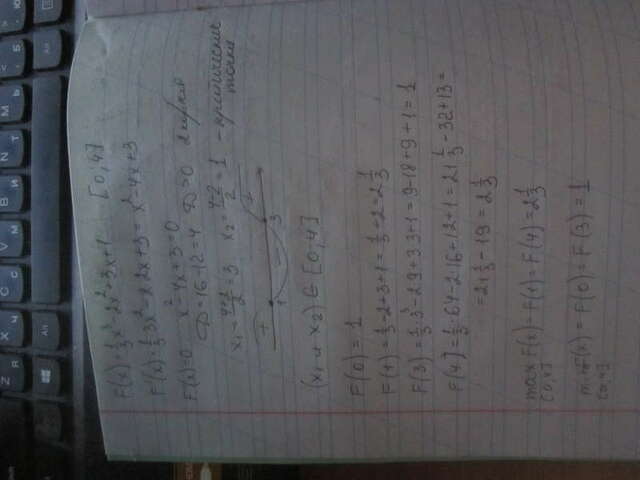 F(x) = 1/3 x³ - 2x² + 3x + 1 [0; 4]
F'(x) = 1/3 · 3x² - 2·2x + 3 = x² - 4x + 3
F'(x) = 0 x² - 4x + 3 = 0
D = 16 - 12 = 4 D > 0 2 корня
x₁ = (4+2)/2 = 3 x₂ = (4-2)/2 = 1 - критические
точки
+ - +
1 3
(x₁ и x₂) ∈ [0; 4]
F(0) = 1
F(1) = 1/3 - 2 + 3 + 1 = 1/3 + 2 = 2 1/3
F(3) = 1/3 · 3³ - 2·9 + 3·3 + 1 = 9 - 18 + 9 + 1 = 1
F(4) = 1/3 · 64 - 2·16 + 12 + 1 = 21 1/3 - 32 + 13 =
= 21 1/3 - 19 = 2 1/3
max F(x) = F(1) = F(4) = 2 1/3
[0; 4]
min F(x) = F(0) = F(3) = 1
[0; 4]